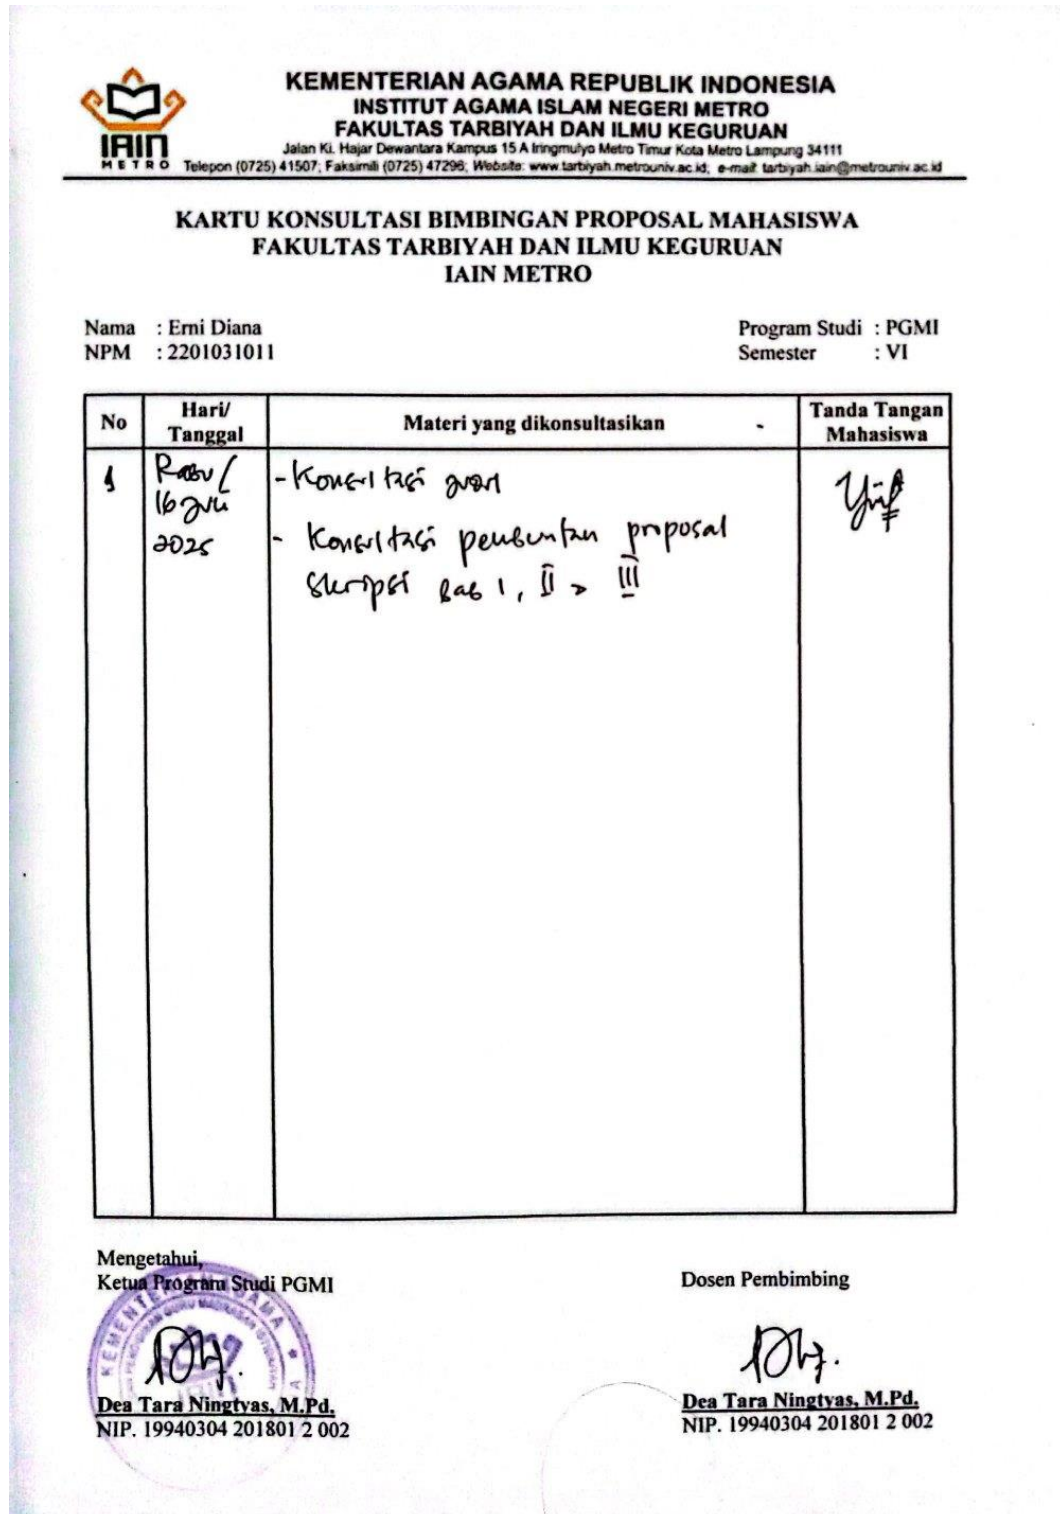 KEMENTERIAN AGAMA REPUBLIK INDONESIA
INSTITUT AGAMA ISLAM NEGERI METRO
FAKULTAS TARBIYAH DAN ILMU KEGURUAN
Jalan Ki. Hajar Dewantara Kampus 15 A Iringmulyo Metro Timur Kota Metro Lampung 34111
Telepon (0725) 41507; Faksimili (0725) 47296; Website: www.tarbiyah.metrouniv.ac.id; e-mail: tarbiyah.iain@metrouniv.ac.id
IAIN
METRO
KARTU KONSULTASI BIMBINGAN PROPOSAL MAHASISWA
FAKULTAS TARBIYAH DAN ILMU KEGURUAN
IAIN METRO
Nama : Erni Diana
Program Studi : PGMI
NPM : 2201031011
Semester : VI
No
Hari/
Tanggal
Materi yang dikonsultasikan
Tanda Tangan
Mahasiswa
1
Rabu /
16
2025
- Konsultasi
- Konsultasi pembuatan proposal
skripsi Bab I, II, III
Mengetahui,
Ketua Program Studi PGMI
KEMENTERIAN AGAMA
Dea Tara Ningtyas, M.Pd.
NIP. 19940304 201801 2 002
Dosen Pembimbing
Dea Tara Ningtyas, M.Pd.
NIP. 19940304 201801 2 002